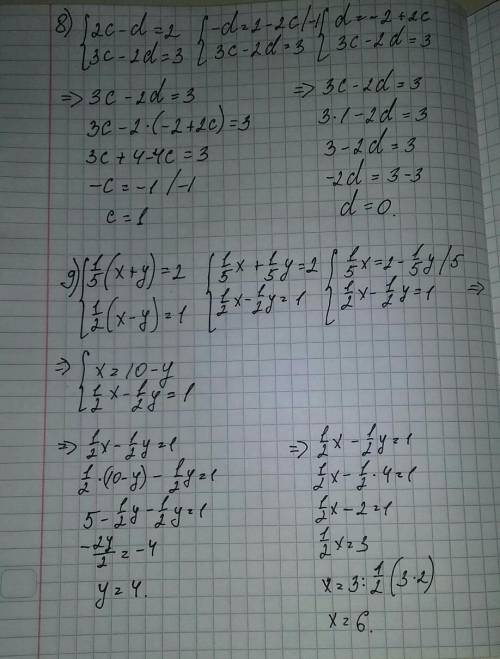 8) { 2c - d = 2 { -d = 2 - 2c /-1 { d = -2 + 2c
3c - 2d = 3 3c - 2d = 3 3c - 2d = 3
=> 3c - 2d = 3
3c - 2·(-2+2c) = 3
3c + 4 - 4c = 3
-c = -1 /-1
c = 1
=> 3c - 2d = 3
3·1 - 2d = 3
3 - 2d = 3
-2d = 3 - 3
d = 0.
9) { 1/5(x+y) = 2 { 1/5x + 1/5y = 2 { 1/5x = 2 - 1/5y /5
1/2(x-y) = 1 1/2x - 1/2y = 1 1/2x - 1/2y = 1 =>
=> { x = 10 - y
1/2x - 1/2y = 1
=> 1/2x - 1/2y = 1
1/2·(10-y) - 1/2y = 1
5 - 1/2y - 1/2y = 1
-2y/2 = -4
y = 4.
=> 1/2x - 1/2y = 1
1/2x - 1/2·4 = 1
1/2x - 2 = 1
1/2x = 3
x = 3 : 1/2 (3·2)
x = 6.